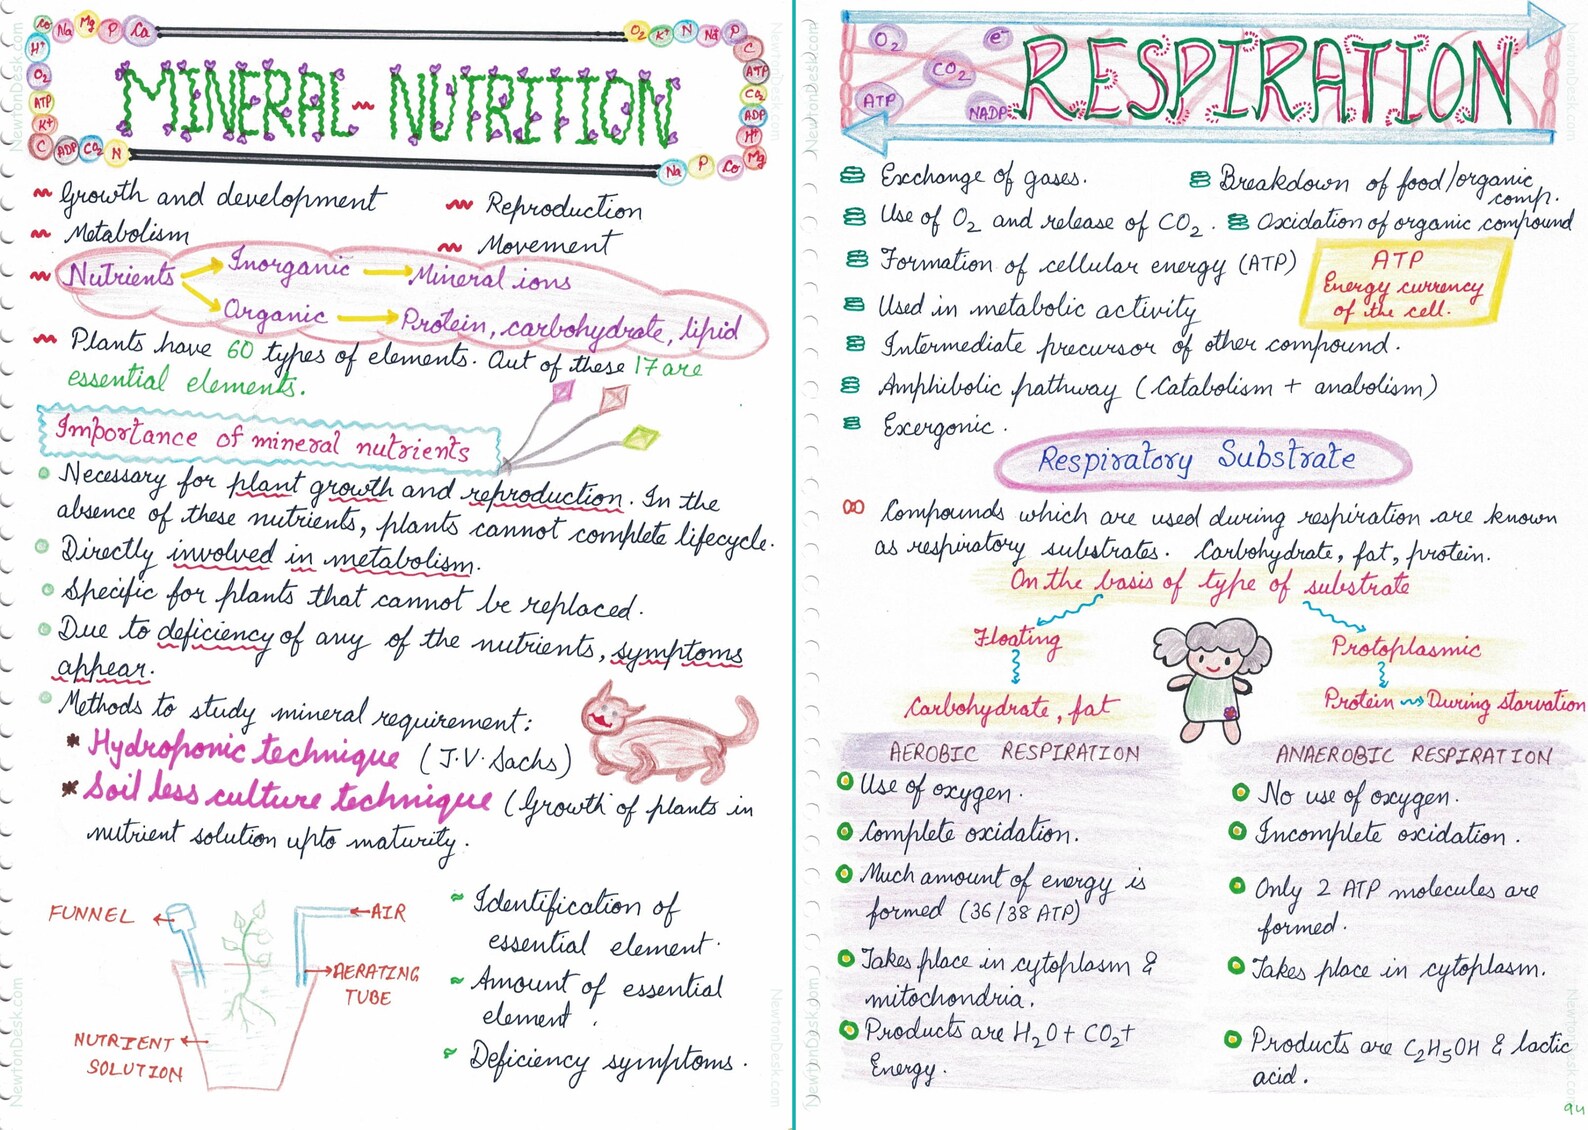 Co Na Mg P Ca
O2 K+ N Na P
H+
O2
ATP
K+
C ADP CO2 N
C
ATP
CO2
ADP
H+
Mg
Na P Co
MINERAL - NUTRITION
Growth and development
Reproduction
Metabolism
Movement
Nutrients
Inorganic Mineral ions
Organic Protein, carbohydrate, lipid
Plants have 60 types of elements. Out of these 17 are
essential elements.
Importance of mineral nutrients
Necessary for plant growth and reproduction. In the
absence of these nutrients, plants cannot complete lifecycle.
Directly involved in metabolism.
Specific for plants that cannot be replaced.
Due to deficiency of any of the nutrients, symptoms
appear.
Methods to study mineral requirement:
* Hydroponic technique (J.V. Sachs)
* Soil less culture technique (Growth of plants in
nutrient solution upto maturity.
FUNNEL
AIR
AERATING
TUBE
NUTRIENT
SOLUTION
Identification of
essential element.
Amount of essential
element.
Deficiency symptoms.
NewtonDesk.com
NewtonDesk.com
NewtonDesk.com
NewtonDesk.com
O2 e-
CO2
ATP NADP
RESPIRATION
Exchange of gases.
Breakdown of food/organic
comp.
Use of O2 and release of CO2.
Oxidation of organic compound
Formation of cellular energy (ATP)
ATP
Energy currency
of the cell.
Used in metabolic activity
Intermediate precursor of other compound.
Amphibolic pathway (Catabolism + anabolism)
Exergonic.
Respiratory Substrate
Compounds which are used during respiration are known
as respiratory substrates. Carbohydrate, fat, protein.
On the basis of type of substrate
Floating
Carbohydrate, fat
Protoplasmic
Protein During starvation
AEROBIC RESPIRATION
Use of oxygen.
Complete oxidation.
Much amount of energy is
formed (36/38 ATP)
Takes place in cytoplasm &
mitochondria.
Products are H2O + CO2 +
Energy.
ANAEROBIC RESPIRATION
No use of oxygen.
Incomplete oxidation.
Only 2 ATP molecules are
formed.
Takes place in cytoplasm.
Products are C2H5OH & lactic
acid.
94
NewtonDesk.com
NewtonDesk.com
NewtonDesk.com
NewtonDesk.com